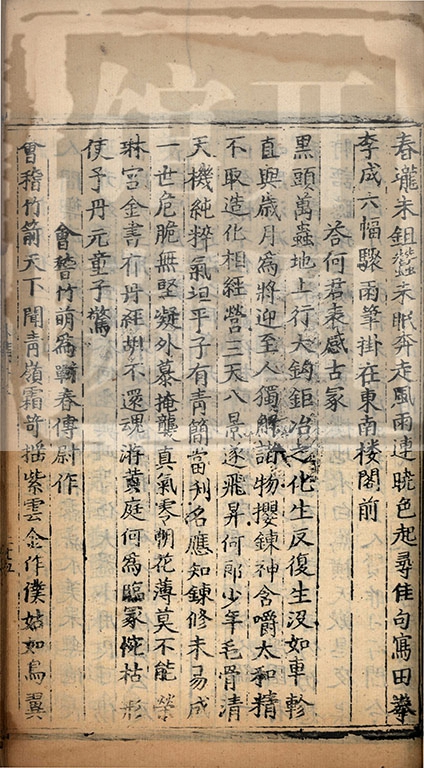 春壠未鉏蠶未眠奔走風雨連曉色起尋佳句寫田拳
李成六幅驟雨筆掛在東南楼閣前
答何君表感古冢
黑頭萬蟲地上行大鈞鉅冶之化生反復生没如車軫
直與歲月為將迎至人獨解諸物攖鍊神含嚼太和精
不取造化相經營三天八景逐飛昇何郎少年毛骨清
天機純粹氣坦平子有青簡當刋名應知鍊修未易成
一世危脆無堅凝外慕掩襲真氣零朝花薄莫不能榮
琳宮金書有丹經胡不還魂游黄庭何為臨冢惋枯形
使予丹元童子驚
會稽竹萌為靳春傳尉作
會稽竹箭天下聞青嶺霜筠揺紫雲金作僕姑如鳥翼